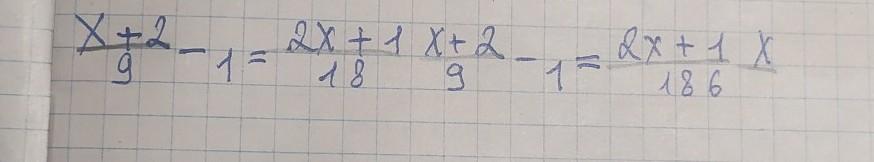 x+2/9 - 1 = 2x+1/18 x+2/9 - 1 = 2x+1/186 x